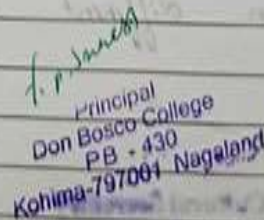 Principal
Don Bosco College
PB - 430
Kohima-797001 Nagaland